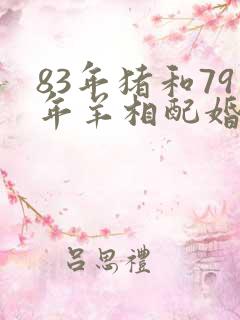 83年猪和79
年羊相配婚
吕思禮